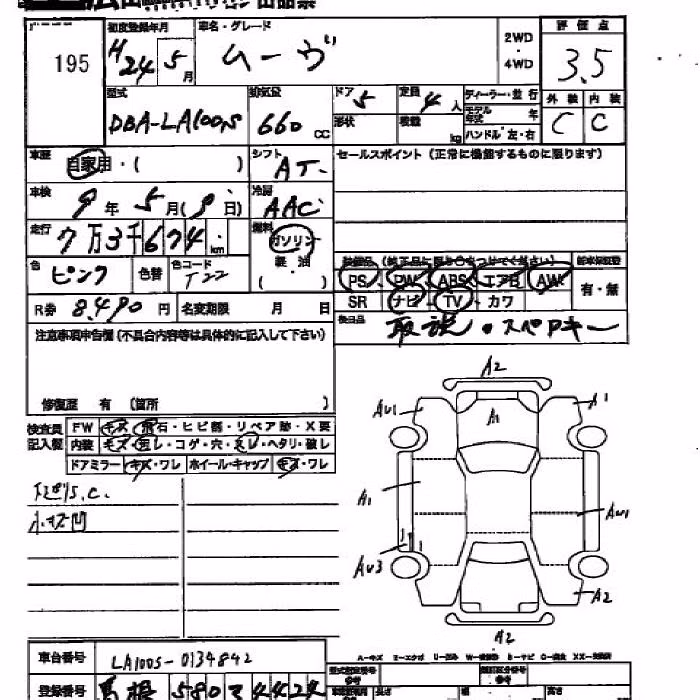 195
初度登録年月 車名・グレード
H24 5月 ムーヴ
2WD
・4WD
評価点
3.5
型式 排気量 ドア 5 定員 4人 ディーラー・並行
DBA-LA100S 660 CC 形状 積載 kg モデル年式 年
ハンドル 左・右
外装 内装
C C
車歴 自家用・( ) シフト AT
セールスポイント (正常に機能するものに限ります)
車検 9年 5月( 9日) 冷房 AAC
走行 7万3千674km 燃料 ガソリン
軽・油
( )
色 ピンク 色替 色コード T22
装備品 (純正品に限り○をつけてください) 新車保証書
PS PW ABS エアB AW 有・無
SR ナビ TV カワ
R券 8,490円 名変期限 月 日
後日品 取説・スペアキー
注意事項申告欄(不具合内容等は具体的に記入して下さい)
修復歴 有 (箇所 )
検査員記入欄
FW キズ・飛石・ヒビ割・リペア跡・X要
内装 キズ・汚レ・コゲ・穴・スレ・ヘタリ・破レ
ドアミラー キズ・ワレ ホイール・キャップ キズ・ワレ
小キズ凹
A2
AU1 A1
A1
A1
AU1
AU3
A2
A2
車台番号 LA100S-0134842
登録番号 島根 580 ス 4424